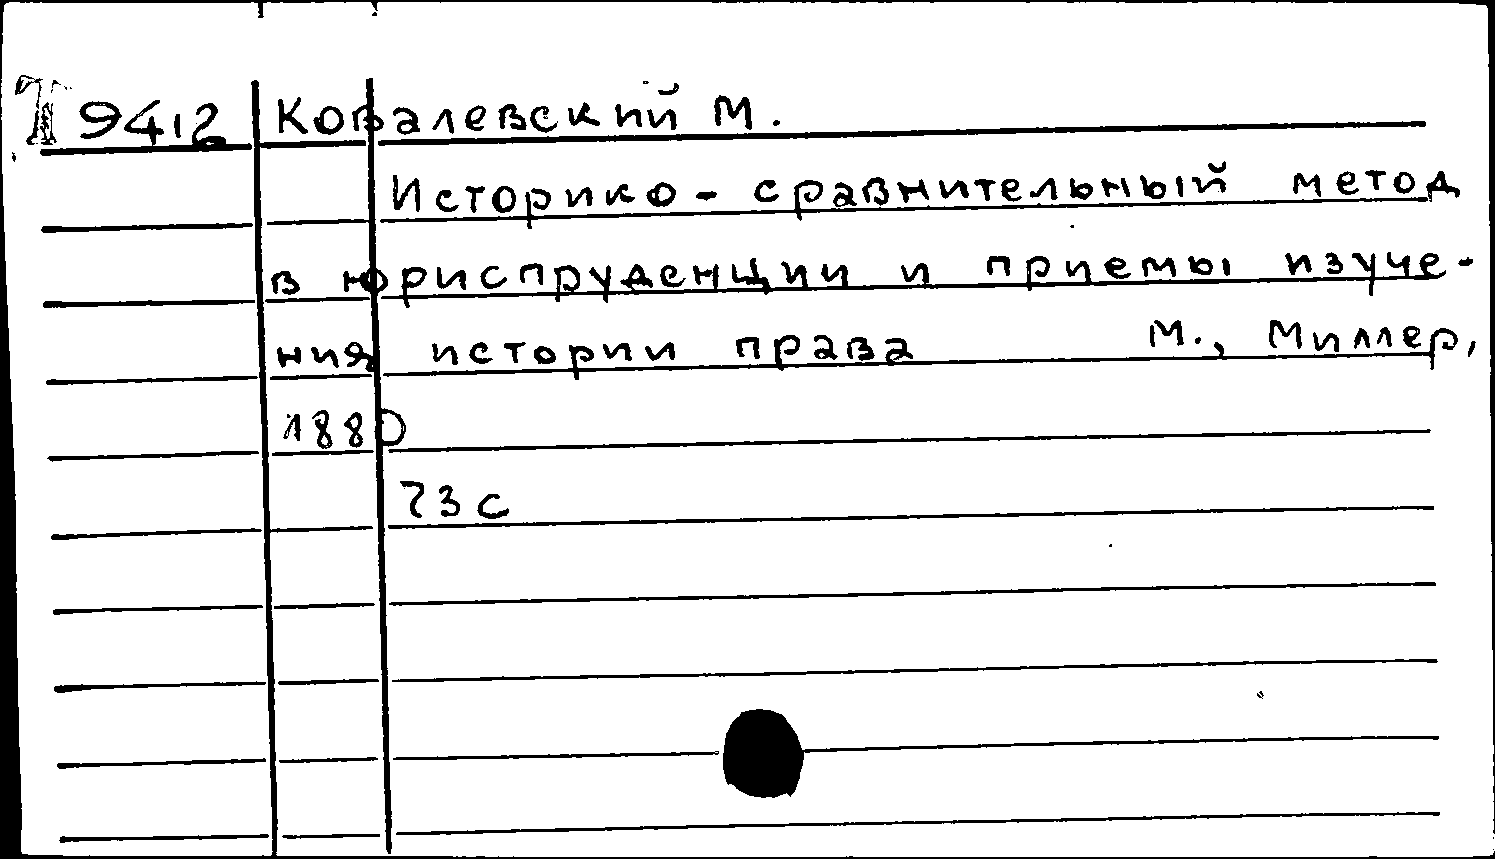 Т 9412 Ковалевский М.
Историко-сравнительный метод
в юриспруденции и приемы изуче-
ния истории права М., Миллер,
1880
73 с